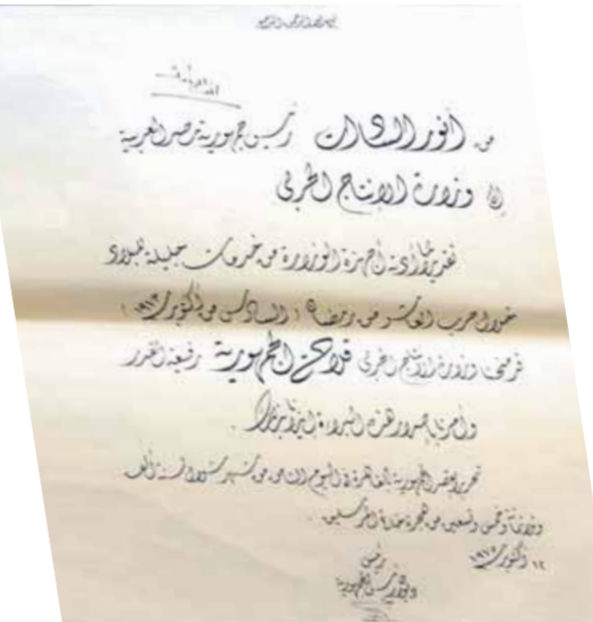 بسم الله الرحمن الرحيم
من أنور السادات رئيس جمهورية مصر العربية
إلى وزارة الإنتاج الحربى
تقديرًا لما أدته أجهزة الوزارة من خدمات جليلة للبلاد
خلال حرب العاشر من رمضان (السادس من أكتوبر ١٩٧٣)
قد منحنا وزارة الإنتاج الحربى قلادة الجمهورية رفيعة القدر
وأمرنا بإصدار هذه البراءة إيذانًا بذلك.
تحريرا بقصر الجمهورية بالقاهرة فى اليوم من شهر شوال سنة ألف
وثلاثمائة وخمس وتسعين من هجرة خاتم المرسلين.
١٢ أكتوبر ١٩٧٥
رئيس
ديوان رئيس الجمهورية